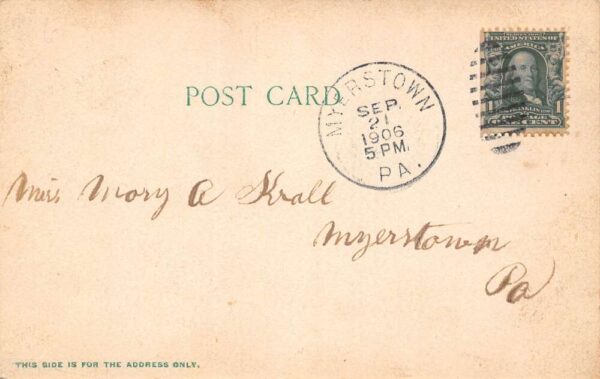 POST CARD
MYERSTOWN
SEP.
21
1906
5 PM.
PA.
UNITED STATES OF
FRANKLIN
1
ONE CENT
Miss Mary A Krall
Myerstown
Pa
THIS SIDE IS FOR THE ADDRESS ONLY.